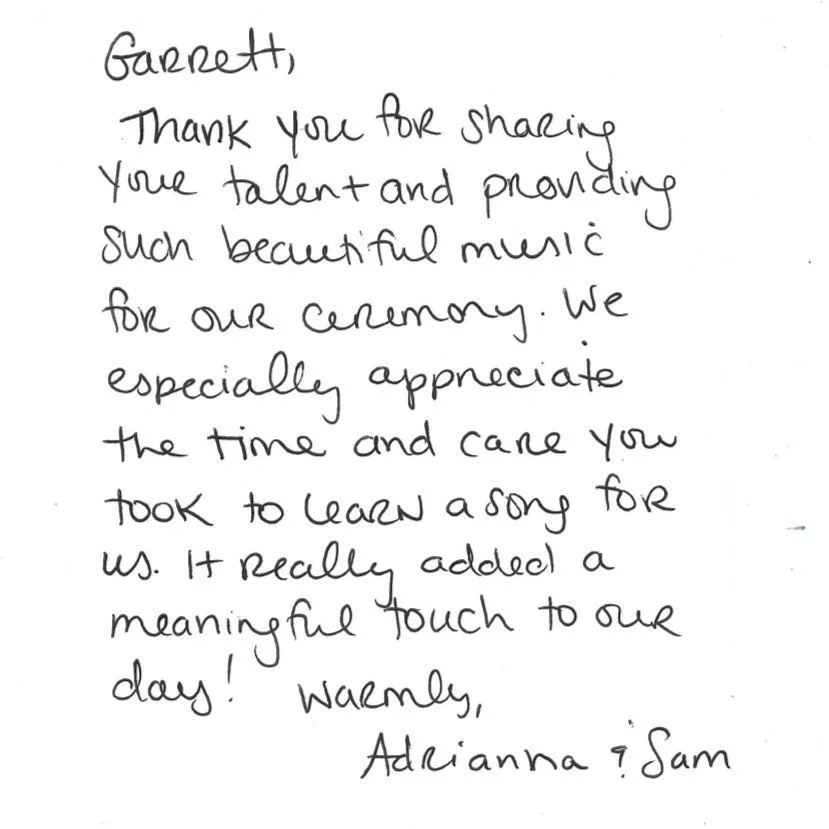 Garrett,
Thank you for sharing
your talent and providing
such beautiful music
for our ceremony. We
especially appreciate
the time and care you
took to learn a song for
us. It really added a
meaningful touch to our
day! Warmly,
Adrianna & Sam